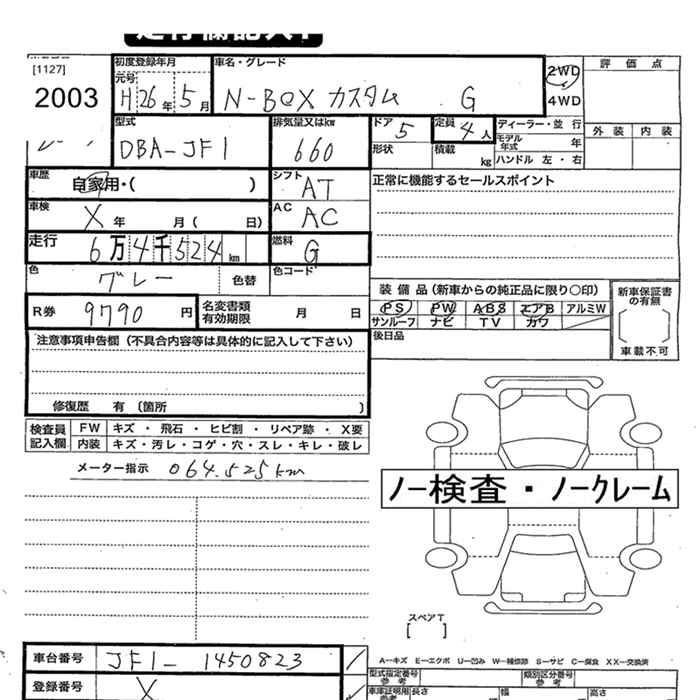 [1127]
2003
初度登録年月
元号
H 26 年 5 月
車名・グレード
N-BOX カスタム G
2WD
4WD
評価点
外装 内装
型式
DBA-JF1
排気量又はkw
660
ドア
5
定員
4 人
形状
積載
kg
ディーラー・並行
モデル年式 年
ハンドル 左・右
車歴
自家用・( )
シフト
AT
正常に機能するセールスポイント
車検
X 年 月( 日)
AC
AC
走行
6万4千524 km
燃料
G
色
グレー
色替
色コード
装備品(新車からの純正品に限り〇印)
PS PW ABS エアB アルミW
サンルーフ ナビ TV カワ
後日品
新車保証書の有無
車載不可
R券
9790 円
名変書類有効期限
月 日
注意事項申告欄(不具合内容等は具体的に記入して下さい)
修復歴 有 〔箇所 〕
検査員記入欄
FW キズ・飛石・ヒビ割・リペア跡・X要
内装 キズ・汚レ・コゲ・穴・スレ・キレ・破レ
メーター指示 064.525km
ノー検査・ノークレーム
スペアT
[ ]
車台番号
JF1-1450823
登録番号
X
A-キズ E-エクボ U-凹み W-補修跡 S-サビ C-腐食 XX-交換済
型式指定番号
参考
類別区分番号
参考
車庫証明用
参考
長さ
幅
高さ